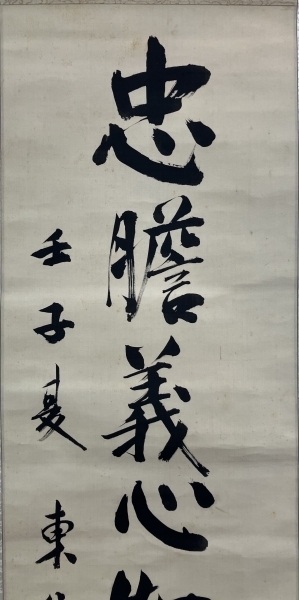 忠膽義心
壬子夏 東